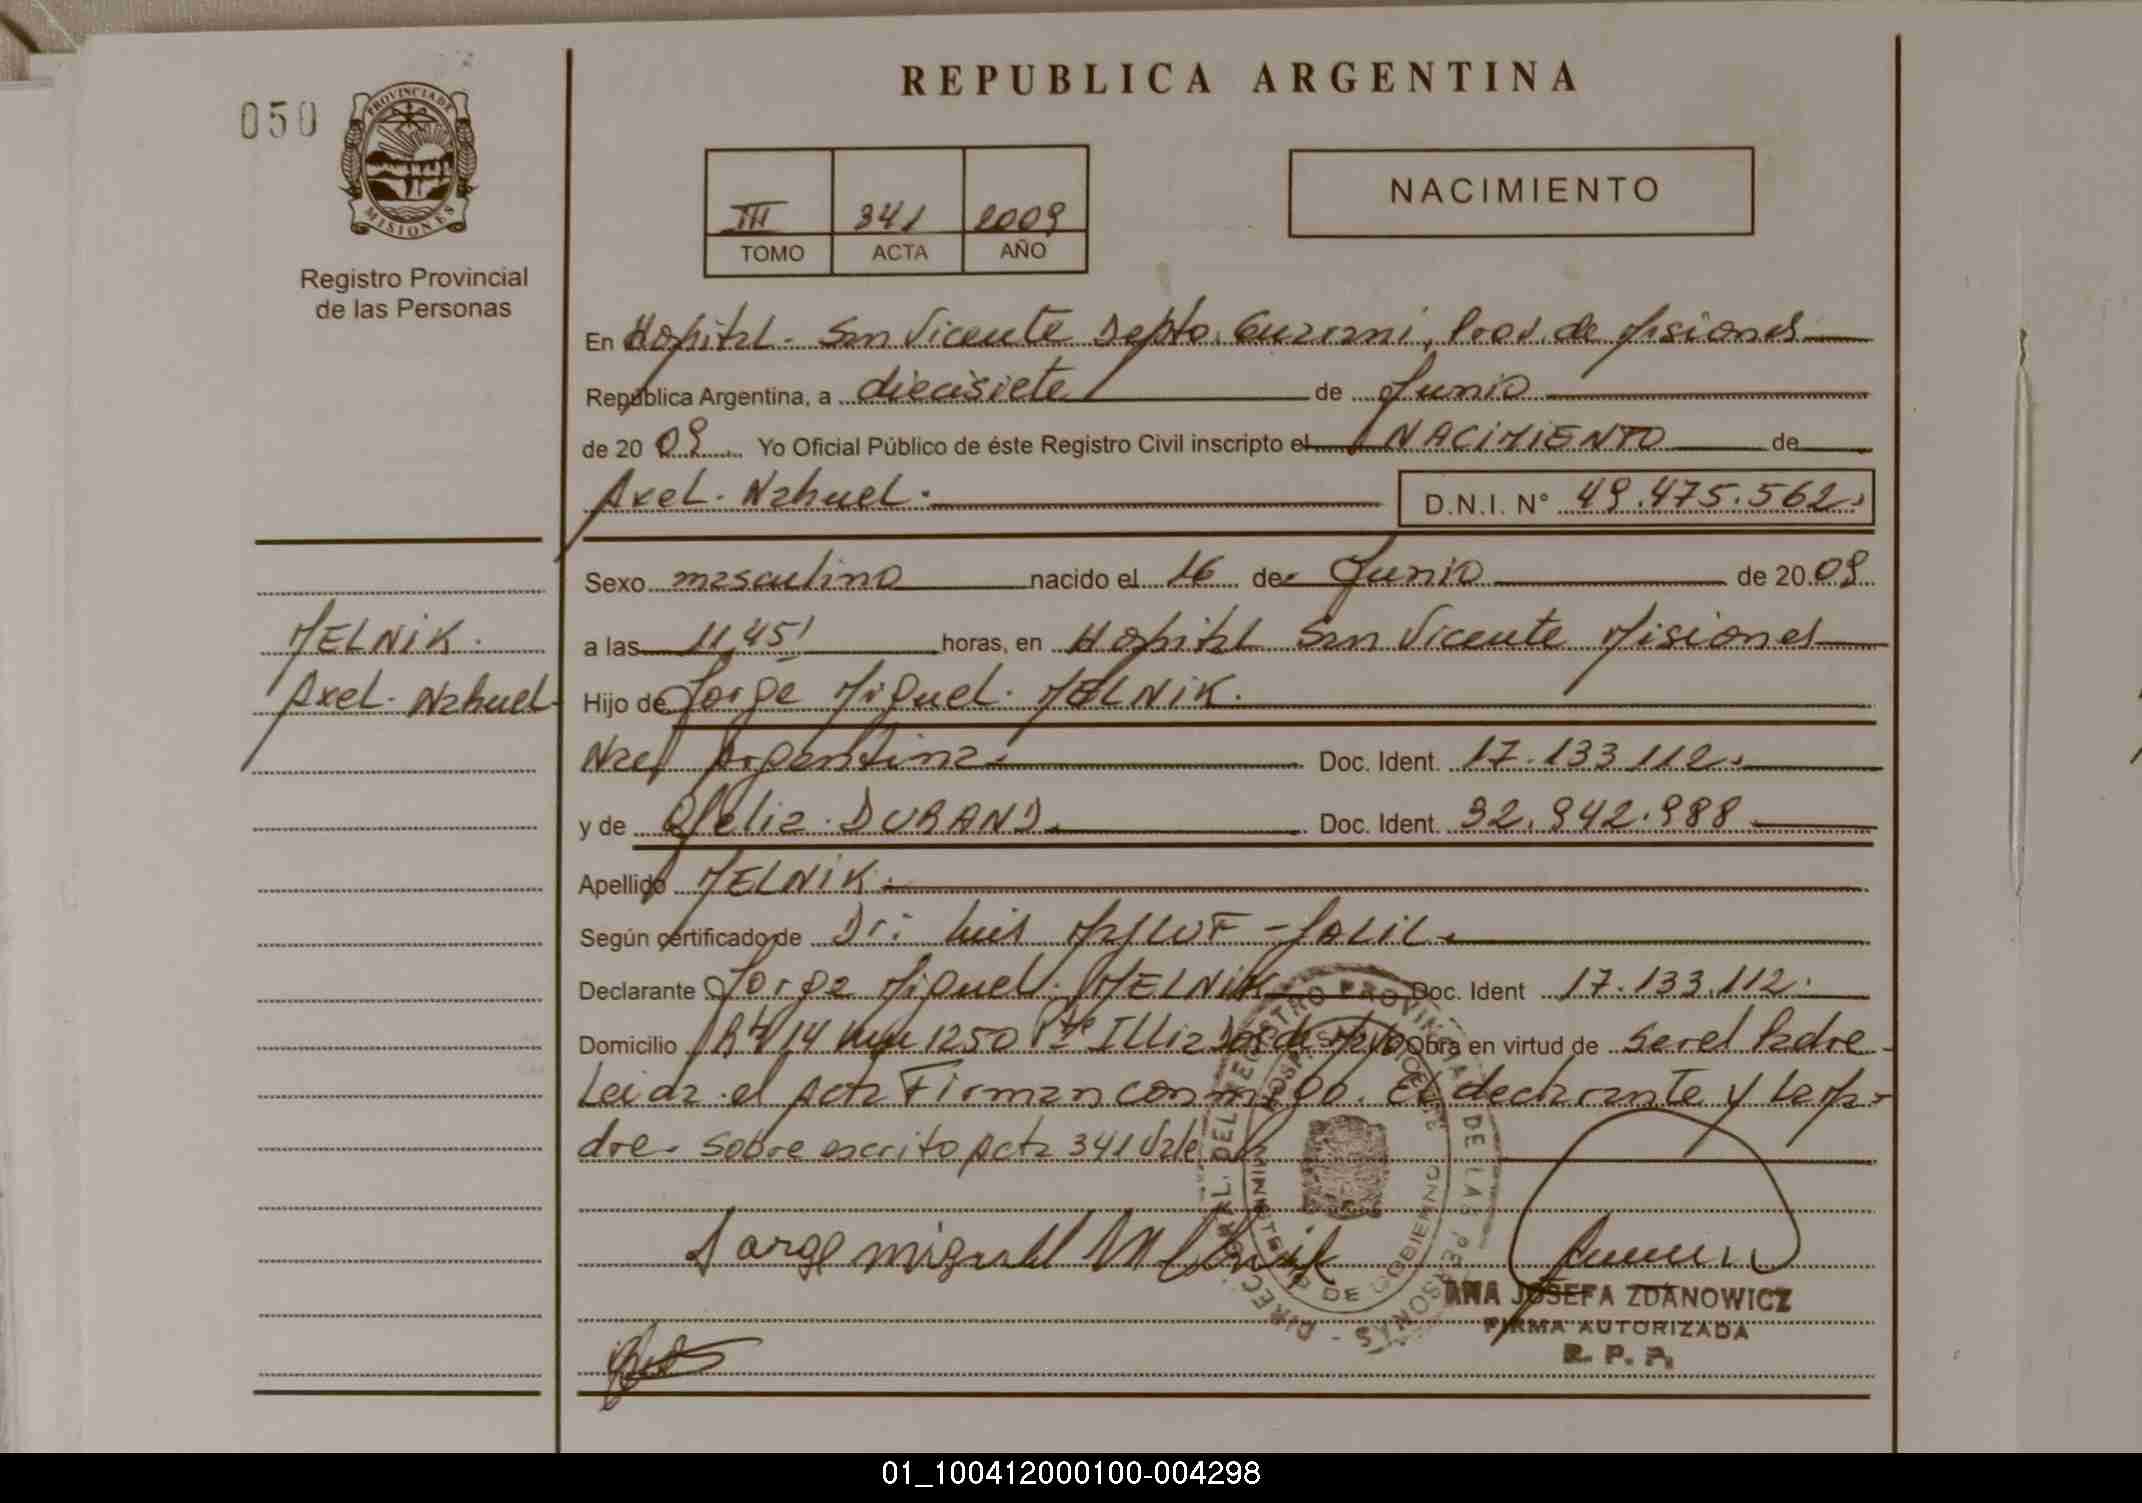 050
PROVINCIA DE
MISIONES
Registro Provincial
de las Personas
REPUBLICA ARGENTINA
III 341 2009
TOMO ACTA AÑO
NACIMIENTO
En Hospital - San Vicente Depto. Guarani, Prov. de Misiones
República Argentina, a diecisiete de Junio
de 20 09 Yo Oficial Público de éste Registro Civil inscripto el NACIMIENTO de
Axel. Nahuel. D.N.I. N° 49.475.562.
Sexo masculino nacido el 16 de Junio de 20 09
MELNIK.
Axel. Nahuel
a las 11,45' horas, en Hospital San Vicente Misiones
Hijo de Jorge Miguel. MELNIK.
Nac. Argentina. Doc. Ident. 17.133.112.
y de Ofelia. DURAND. Doc. Ident. 32.942.988
Apellido MELNIK.
Según certificado de Dr: Luis - JALIL.
Declarante Jorge Miguel. MELNIK Doc. Ident 17.133.112.
Domicilio 14 1250 Illia Dos de Mayo Obra en virtud de ser el Padre
Leida el Acta Firman conmigo. El declarante y la Ma-
dre. Sobre escrito Acta 341 Vale
Jorge miguel Melnik
DIRECC. GRAL. DEL REGISTRO PROVINCIAL DE LAS PERSONAS
MINISTERIO DE GOBIERNO
HOSP. SAN VICENTE
ANA JOSEFA ZDANOWICZ
FIRMA AUTORIZADA
R. P. P.
01_100412000100-004298